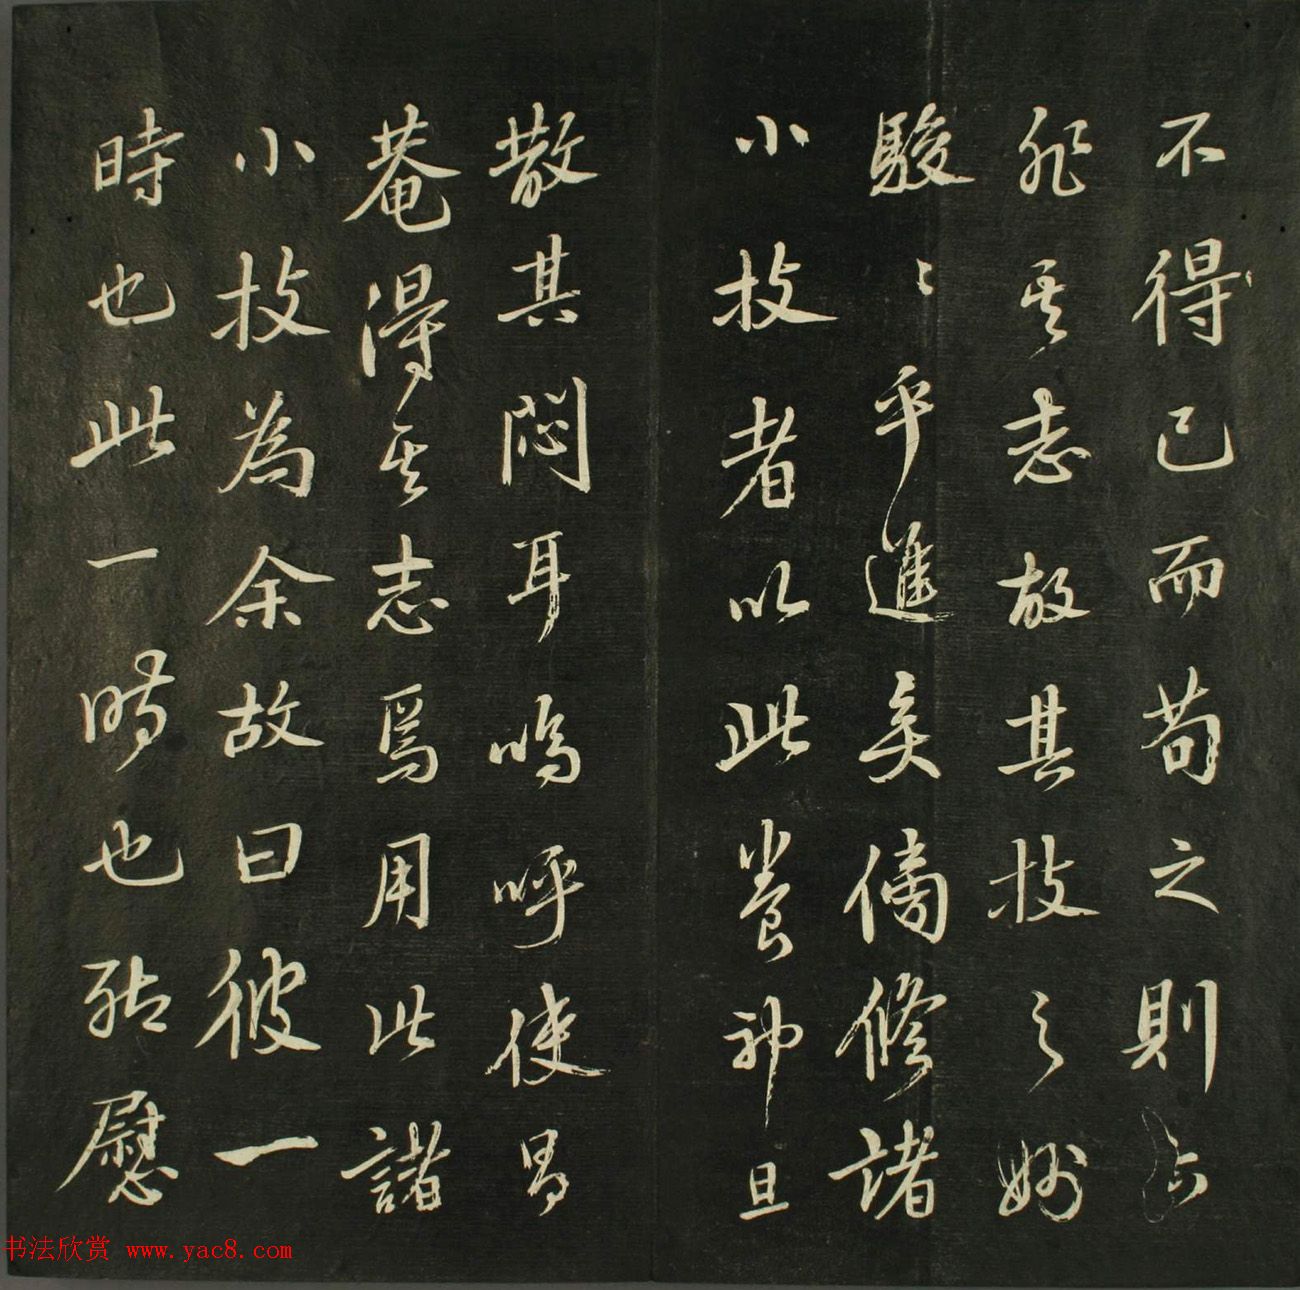 不得已而苟之則
非其志故其技之妙
駸〻乎進矣修諸
小技者以此養神且
散其悶耳嗚呼使昌
菴得其志焉用此諸
小技為余故曰彼一
時也此一時也聊慰
书法欣赏 www.yac8.com